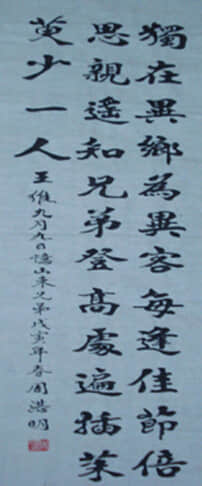 獨在異鄉為異客每逢佳節倍
思親遙知兄弟登高處遍插茱
萸少一人
王維九月九日憶山東兄弟戊寅年春周浩明